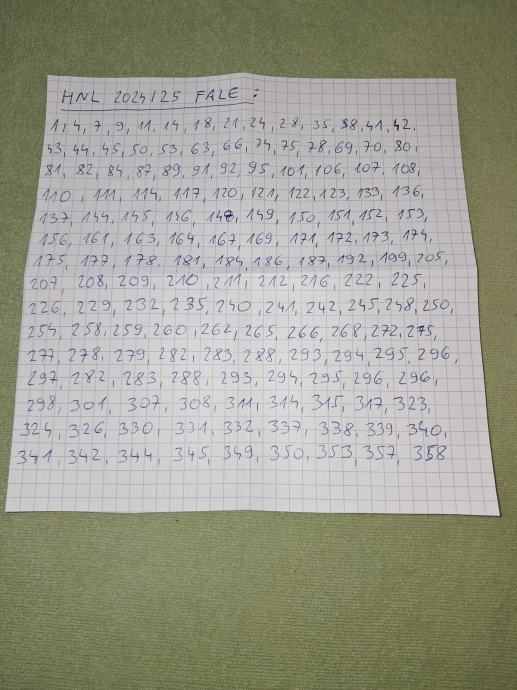 HNL 2024/25 FALE:
1, 4, 7, 9, 11, 14, 18, 21, 24, 28, 35, 38, 41, 42.
43, 44, 45, 50, 53, 63, 66, 74, 75, 78, 69, 70, 80,
81, 82, 84, 87, 89, 91, 92, 95, 101, 106, 107, 108,
110, 111, 114, 117, 120, 121, 122, 123, 133, 136,
137, 144, 145, 146, 148, 149, 150, 151, 152, 153,
156, 161, 163, 164, 167, 169, 171, 172, 173, 174,
175, 177, 178, 181, 184, 186, 187, 192, 199, 205,
207, 208, 209, 210, 211, 212, 216, 222, 225,
226, 229, 232, 235, 240, 241, 242, 245, 248, 250,
254, 258, 259, 260, 262, 265, 266, 268, 272, 275,
277, 278, 279, 282, 283, 288, 293, 294, 295, 296,
297, 282, 283, 288, 293, 294, 295, 296, 296,
298, 301, 307, 308, 311, 314, 315, 317, 323,
324, 326, 330, 331, 332, 337, 338, 339, 340,
341, 342, 344, 345, 349, 350, 353, 357, 358